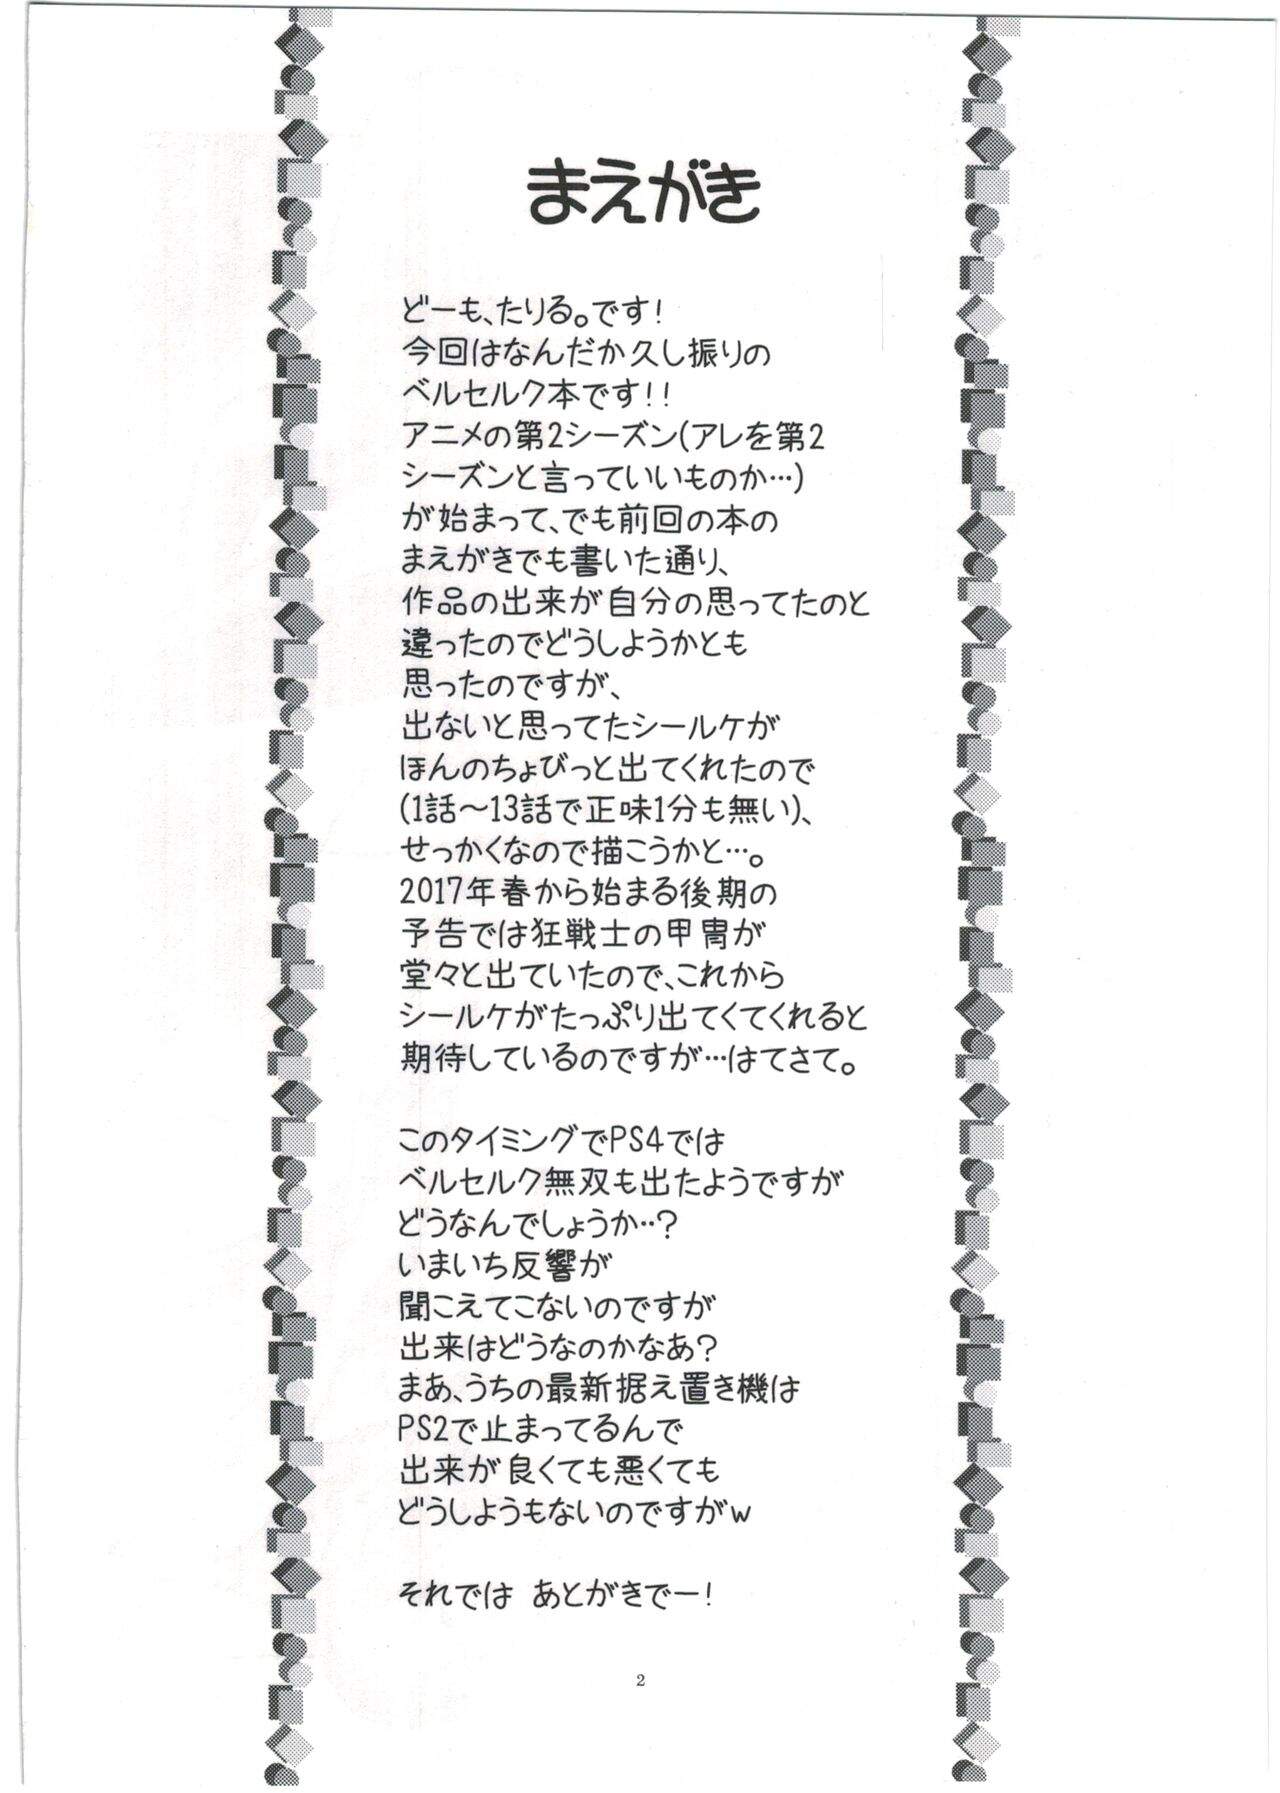 まえがき
どーも、たりる。です!
今回はなんだか久し振りの
ベルセルク本です!!
アニメの第2シーズン(アレを第2
シーズンと言っていいものか…)
が始まって、でも前回の本の
まえがきでも書いた通り、
作品の出来が自分の思ってたのと
違ったのでどうしようかとも
思ったのですが、
出ないと思ってたシールケが
ほんのちょびっと出てくれたので
(1話〜13話で正味1分も無い)、
せっかくなので描こうかと…。
2017年春から始まる後期の
予告では狂戦士の甲冑が
堂々と出ていたので、これから
シールケがたっぷり出てくてくれると
期待しているのですが…はてさて。
このタイミングでPS4では
ベルセルク無双も出たようですが
どうなんでしょうか‥?
いまいち反響が
聞こえてこないのですが
出来はどうなのかなあ?
まあ、うちの最新据え置き機は
PS2で止まってるんで
出来が良くても悪くても
どうしようもないのですがw
それでは あとがきでー!
2